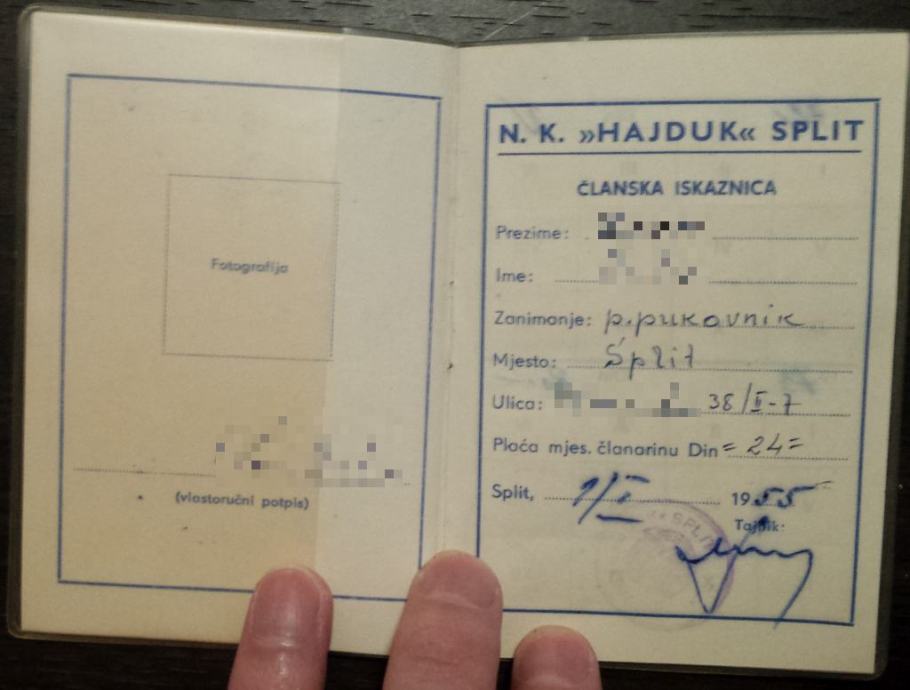 Fotografija
(vlastoručni potpis)
N. K. »HAJDUK« SPLIT
ČLANSKA ISKAZNICA
Prezime:
Ime:
Zanimanje: p.pukovnik
Mjesto: Split
Ulica: 38/II-7
Plaća mjes. članarinu Din = 24 =
Split, 1/I 1955
Tajnik:
SPLIT